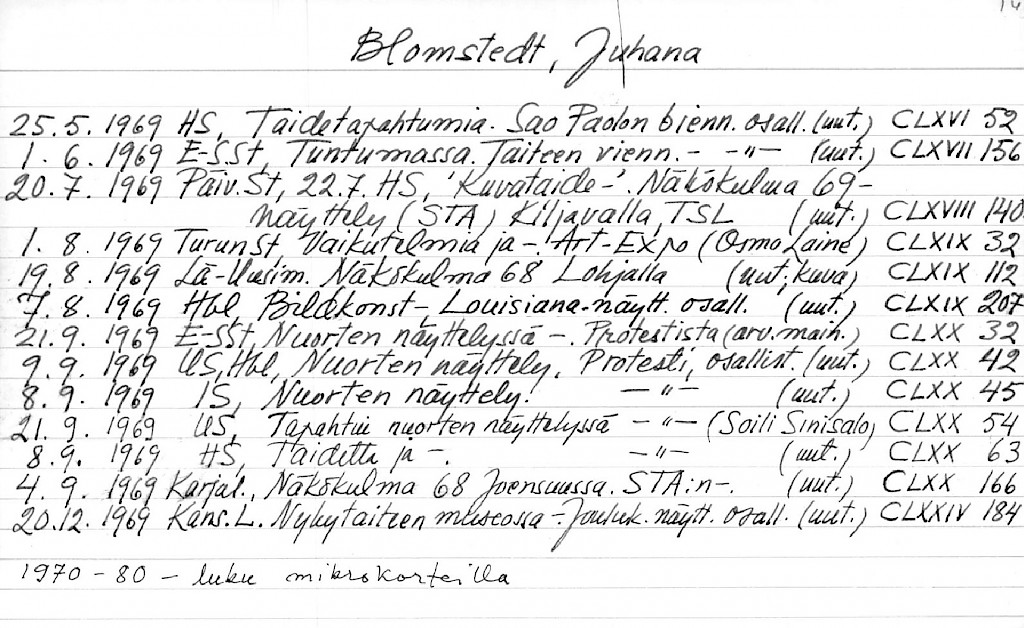 14
Blomstedt, Juhana
25.5. 1969 HS, Taidetapahtumia. Sao Paolon bienn. osall. (uut.) CLXVI 52
1. 6. 1969 E-S.St, Tuntumassa. Taiteen vienn. - -"- (uut.) CLXVII 156
20.7. 1969 Päiv.St, 22.7. HS, 'Kuvataide-'. Näkökulma 69-
näyttely (STA) Kiljavalla, TSL (uut.) CLXVIII 140
1. 8. 1969 TurunSt, Vaikutelmia ja -. Art-Expo (Osmo Laine) CLXIX 32
19.8. 1969 Lä-Uusim. Näkökulma 68 Lohjalla (uut; kuva) CLXIX 112
7.8. 1969 Hbl, Bildkonst-, Louisiana-näytt. osall. (uut.) CLXIX 207
21.9. 1969 E-SSt, Nuorten näyttelyssä -. Protestista (arv. main.) CLXX 32
9.9. 1969 US, Hbl, Nuorten näyttely, Protesti, osallist. (uut.) CLXX 42
8.9. 1969 IS, Nuorten näyttely. -"- (uut.) CLXX 45
21.9. 1969 US, Tapahtui nuorten näyttelyssä -"- (Soili Sinisalo) CLXX 54
8.9. 1969 HS, Taidetta ja -. -"- (uut.) CLXX 63
4.9. 1969 Karjal., Näkökulma 68 Joensuussa. STA:n-. (uut.) CLXX 166
20.12. 1969 Kans.L. Nykytaiteen museossa -. Jouluk. näytt. osall. (uut.) CLXXIV 184
1970-80 - luku mikrokorteilla